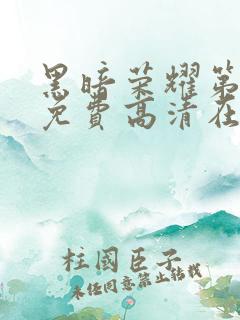 黑暗荣耀第
免费高清在
柱國臣子
未经同意禁止转载